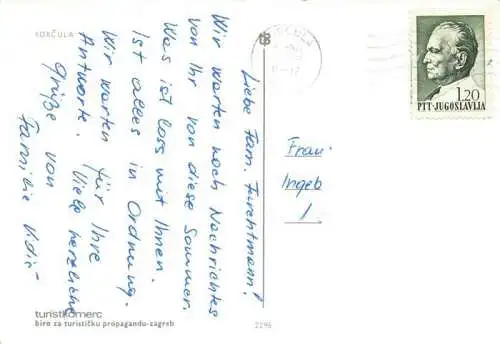 KORČULA
Liebe Fam. Furchtmann!
Wir warten noch Nachrichtes
von Ihr von diese Sommer.
Was ist loss mit Ihnen.
Ist alles in Ordnung.
Wir warten für Ihre
Antworte. Viele herzliche
Grüße von
Familie
Frau
Ingeb
1.
1.20
PTT-JUGOSLAVIJA
turistkomerc
biro za turističku propagandu-zagreb
2296